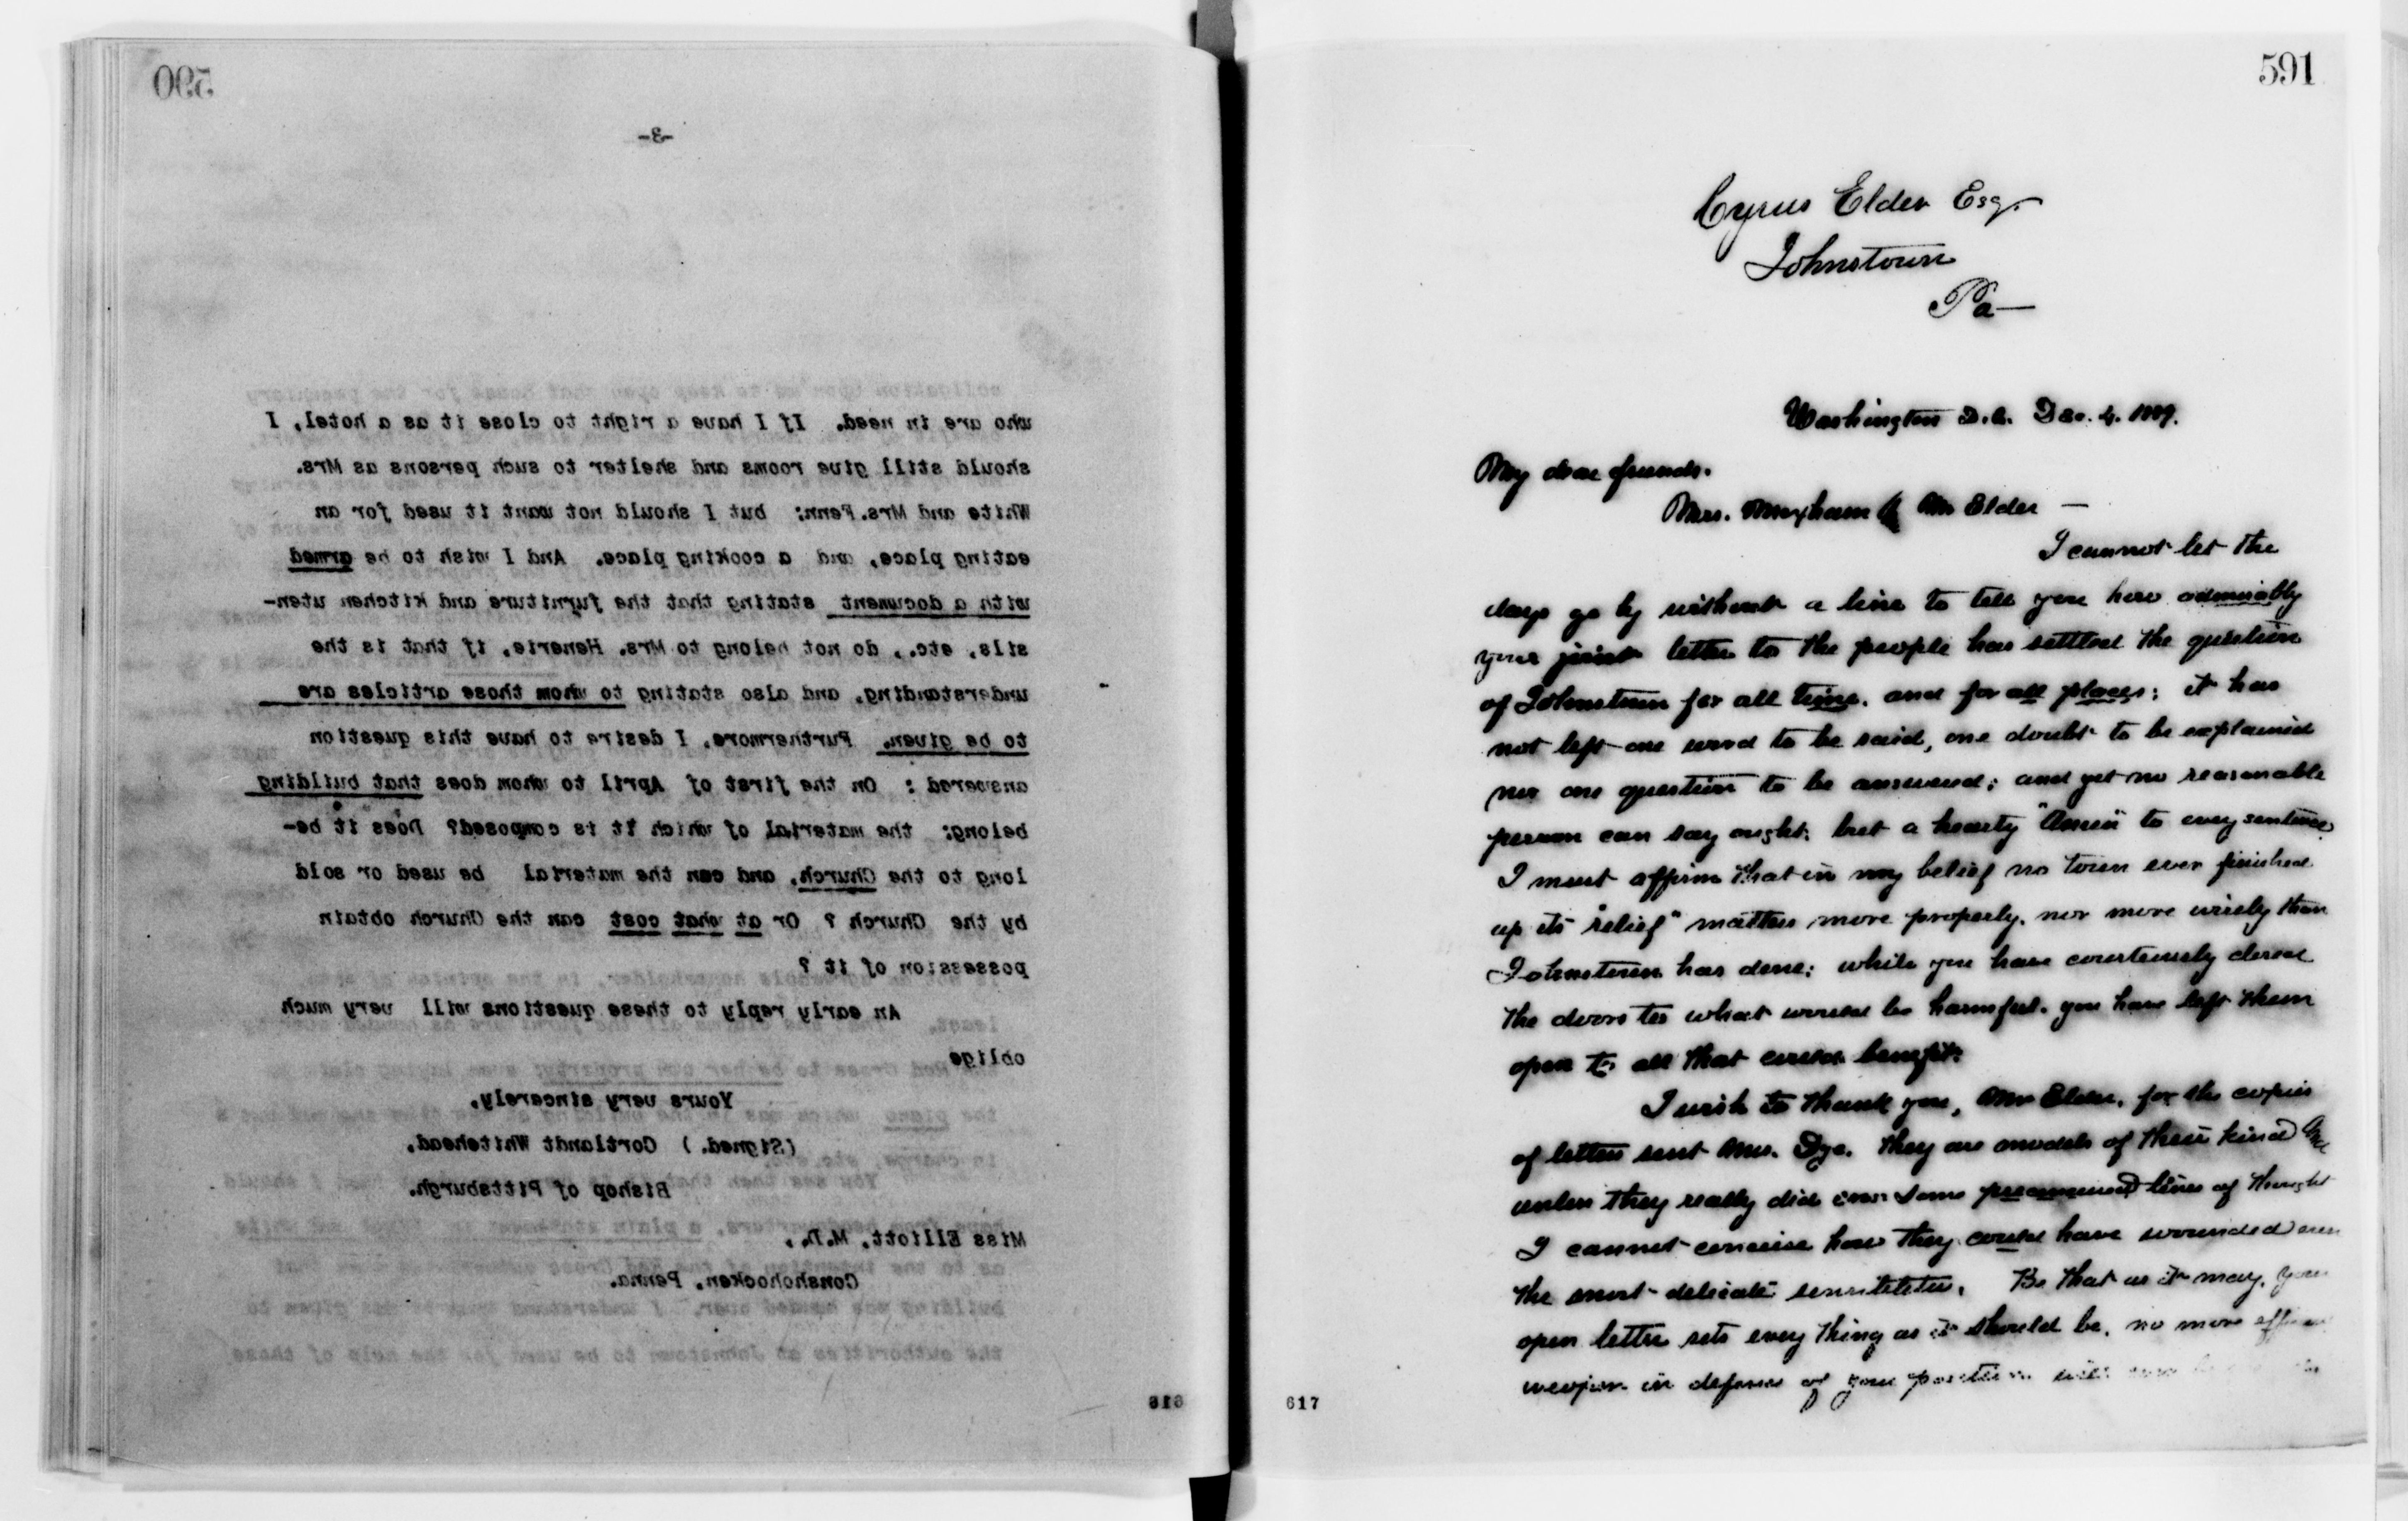 590
-3-
who are in need. If I have a right to close it as a hotel, I
should still give rooms and shelter to such persons as Mrs.
White and Mrs. Fenn; but I should not want it used for an
eating place, and a cooking place. And I wish to be armed
with a document stating that the furniture and kitchen uten-
sils, etc., do not belong to Mrs. Henerie, if that is the
understanding, and also stating to whom those articles are
to be given. Furthermore, I desire to have this question
answered: On the first of April to whom does that building
belong; the material of which it is composed? Does it be-
long to the Church, and can the material be used or sold
by the Church ? Or at what cost can the Church obtain
possession of it ?
An early reply to these questions will very much
oblige
Yours very sincerely,
(Signed.) Cortlandt Whitehead,
Bishop of Pittsburgh.
Miss Elliott, M.D.,
Conshohocken, Penna.
616
591
Cyrus Elder Esq.
Johnstown
Pa—
Washington D.C. Dec. 4. 1889.
My dear friends.
Mrs. & Mr Elder —
I cannot let the
days go by without a line to tell you how admirably
your joint letter to the people has settled the question
of Johnstown for all time. and for all places; it has
not left one word to be said, one doubt to be explained
nor one question to be answered; and yet no reasonable
person can say ought; but a hearty "Amen" to every sentence
I must affirm that in my belief no town ever finished
up its "relief" matters more properly. nor more wisely than
Johnstown has done; while you have courteously closed
the doors to what would be harmful. you have left them
open to all that could benefit.
I wish to thank you, Mr Elder, for the copies
of letters sent Mrs. Dye. They are models of their kind
unless they really did some lines of thought
I cannot conceive how they could have wounded even
the most delicate Be that as it may, your
open letter sets every thing as it should be. no more
weapon in defense of your position will
617